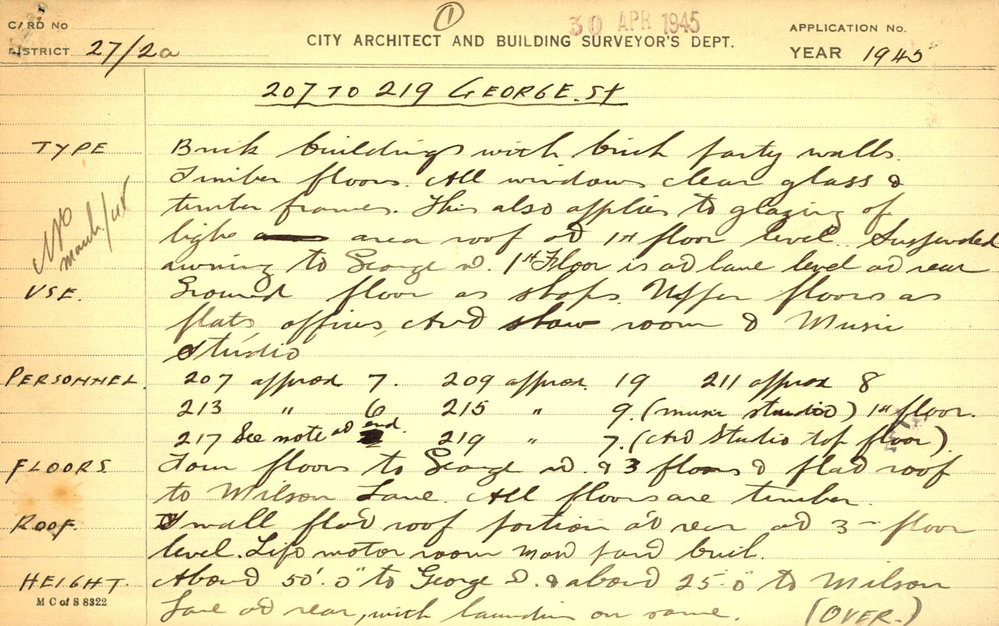 ①
30 APR 1945
CARD No
DISTRICT 27/2a
CITY ARCHITECT AND BUILDING SURVEYOR'S DEPT.
APPLICATION No.
YEAR 1945
207 TO 219 GEORGE. St
TYPE Brick buildings with brick party walls.
Timber floors. All windows clear glass &
timber frames. This also applies to glazing of
light area roof at 1st floor level. Suspended
awning to George St. 1st Floor is at lane level at rear
March/48
USE. Ground floor as shops. Upper floors as
flats, offices, Art show room & Music
Studio
PERSONNEL. 207 approx 7. 209 approx. 19 211 approx 8
213 " 6 215 " 9. (music studio) 1st floor.
217 See note at end. 219 " 7. (Art Studio top floor)
FLOORS Four floors to George St. & 3 floors & flat roof
to Wilson Lane. All floors are timber.
ROOF. Small flat roof portion at rear at 3 floor
level. Lift motor room
HEIGHT. About 50'.0" to George St. & about 25-0" to Wilson
Lane at rear, with laundries on same. (OVER-)
M C of S 8322